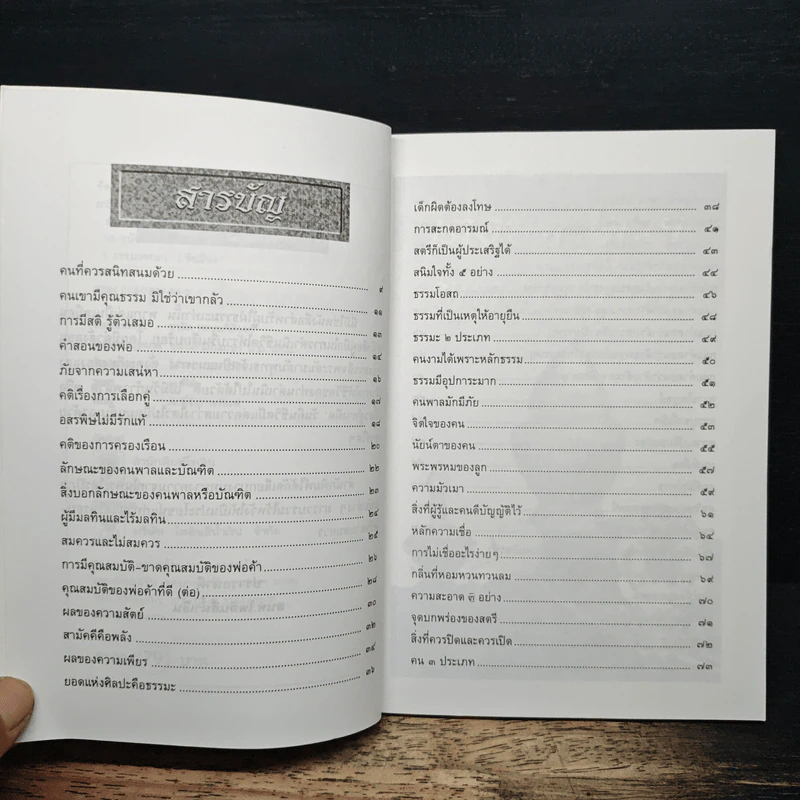 สารบัญ
คนที่ควรสนิทสนมด้วย ๙
คนเขามีคุณธรรม มิใช่ว่าเขากลัว ๑๑
การมีสติ รู้ตัวเสมอ ๑๓
คำสอนของพ่อ ๑๔
ภัยจากความเสน่หา ๑๖
คติเรื่องการเลือกคู่ ๑๗
อสรพิษไม่มีรักแท้ ๑๘
คติของการครองเรือน ๒๐
ลักษณะของคนพาลและบัณฑิต ๒๒
สิ่งบอกลักษณะของคนพาลหรือบัณฑิต ๒๓
ผู้มีมลทินและไร้มลทิน ๒๔
สมควรและไม่สมควร ๒๕
การมีคุณสมบัติ-ขาดคุณสมบัติของพ่อค้า ๒๖
คุณสมบัติของพ่อค้าที่ดี (ต่อ) ๒๘
ผลของความสัตย์ ๓๐
สามัคคีคือพลัง ๓๒
ผลของความเพียร ๓๔
ยอดแห่งศิลปะคือธรรมะ ๓๖
เด็กผิดต้องลงโทษ ๓๘
การสะกดอารมณ์ ๔๑
สตรีก็เป็นผู้ประเสริฐได้ ๔๓
สนิมใจทั้ง ๕ อย่าง ๔๔
ธรรมโอสถ ๔๖
ธรรมที่เป็นเหตุให้อายุยืน ๔๘
ธรรมะ ๒ ประเภท ๔๙
คนงามได้เพราะหลักธรรม ๕๐
ธรรมมีอุปการะมาก ๕๑
คนพาลมักมีภัย ๕๒
จิตใจของคน ๕๓
นัยน์ตาของคน ๕๕
พระพรหมของลูก ๕๗
ความมัวเมา ๕๙
สิ่งที่ผู้รู้และคนดีบัญญัติไว้ ๖๑
หลักความเชื่อ ๖๔
การไม่เชื่ออะไรง่ายๆ ๖๗
กลิ่นที่หอมหวนทวนลม ๖๙
ความสะอาด ๓ อย่าง ๗๐
จุดบกพร่องของสตรี ๗๑
สิ่งที่ควรปิดและควรเปิด ๗๒
คน ๓ ประเภท ๗๓